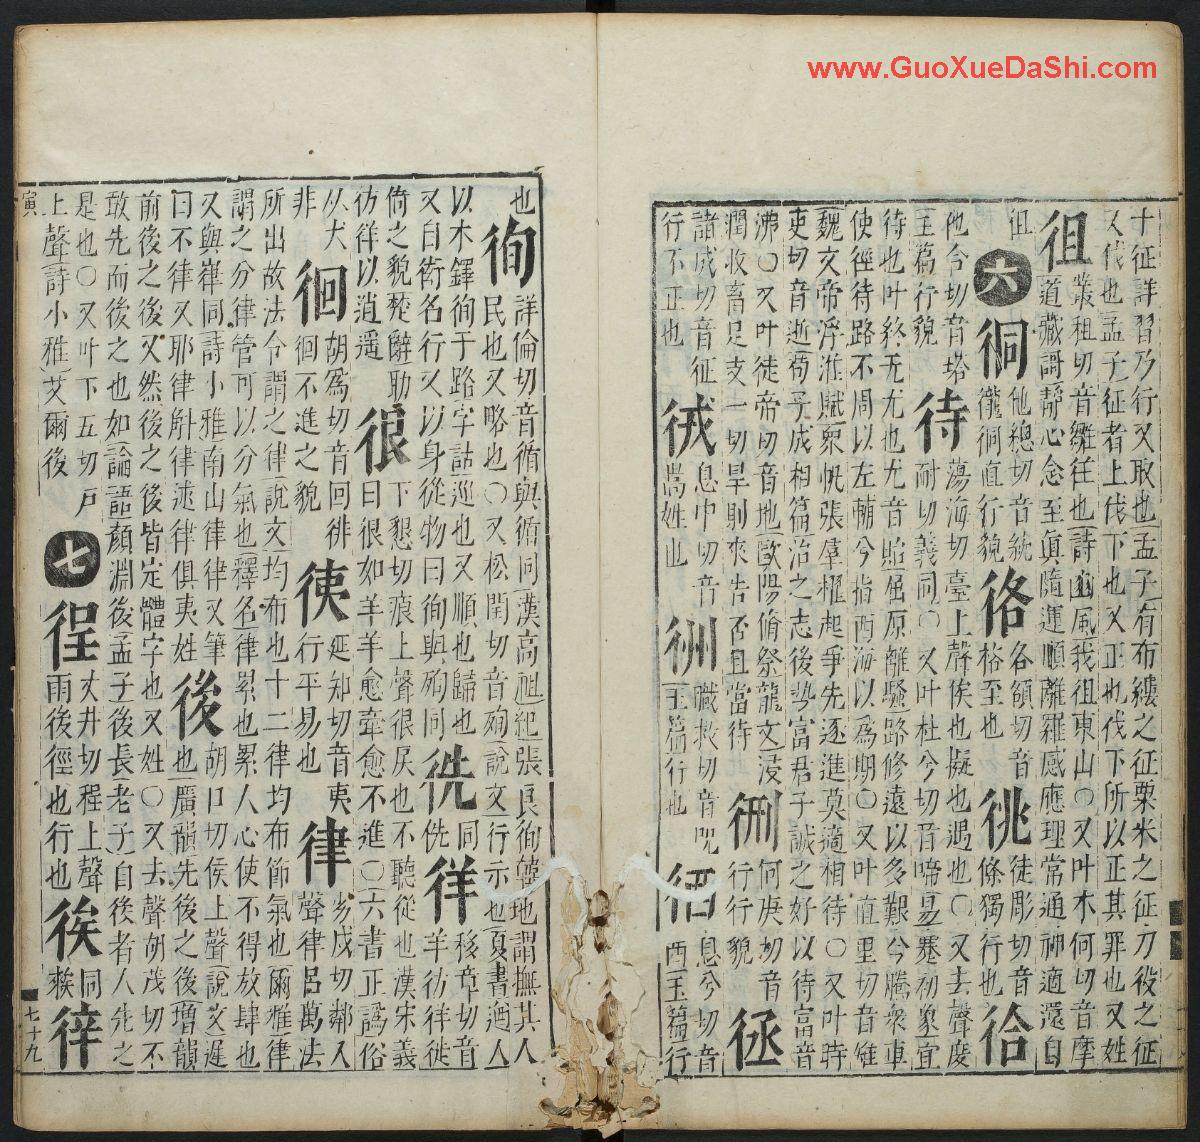 十征詳習乃行又取也孟子有布縷之征粟米之征力役之征
又伐也孟子征者上伐下也又正也伐下所以正其罪也又姓
徂
叢租切音雛往也詩豳風我徂東山〇又叶木何切音摩
道藏謌靜心念至眞隨運順離羅感應理常通神適還自
徂
六
他總切音統
直行貌
各額切音
格至也
徒彫切音
條獨行也
他合切音塔
玉篇行貌
待
蕩海切臺上聲俟也擬也遇也〇又去聲度
耐切義同〇又叶杜兮切音啼易蹇初象宜
待也叶終无尤也尤音貽屈原離騷路修遠以多艱兮騰衆車
使徑待路不周以左轉兮指西海以爲期〇又叶直里切音雉
魏文帝浮淮賦衆帆張羣櫂起爭先逐進莫適相待〇又叶時
吏切音逝荀子成相篇治之志後埶富君子誠之好以待富音
沸〇又叶徒帝切音地歐陽脩祭龍文沒
潤收畜足支一切旱則來告否且當待
何庚切音
行行貌
諸成切音征
行不正也
息中切音
嵩姓也
職救切音呪
玉篇行也
徆
息兮切音
西玉篇行
也
徇
詳倫切音循與循同漢高祖紀張良徇韓地謂撫其人
民也又略也〇又松閏切音殉說文行示也夏書遒人
以木鐸徇于路字詁巡也又順也歸也
又自衒名行又以身從物曰徇與殉同
侁同
徉
移章切音
羊彷徉徙
倚之貌楚辭聊
彷徉以逍遥
很
下懇切痕上聲很戾也不聽從也漢宋義
曰很如羊羊愈牽愈不進〇六書正譌俗
以犬
非
徊
胡爲切音回徘
徊不進之貌
延知切音夷
行平易也
律
劣戌切鄰入
聲律呂萬法
所出故法令謂之律說文均布也十二律均布節氣也爾雅律
謂之分律管可以分氣也釋名律累也累人心使不得放肆也
又與嵂同詩小雅南山律律又筆
曰不律又耶律斛律逑律俱夷姓
後
胡口切侯上聲說文遲
也廣韻先後之後增韻
前後之後又然後之後皆定體字也又姓〇又去聲胡茂切不
敢先而後之也如論語顏淵後孟子後長老子自後者人先之
是也〇又叶下五切戸
上聲詩小雅艾爾後
七
徎
丈井切程上聲
雨後徑也行也
同
寅
七十九
www.GuoXueDaShi.com